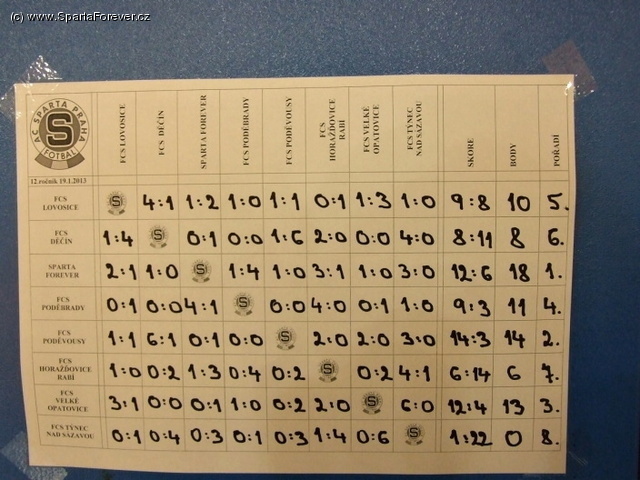 (c) www.SpartaForever.cz
AC SPARTA PRAHA
S
FOTBAL
12.ročník 19.1.2013
FCS LOVOSICE
FCS DĚČÍN
SPARTA FOREVER
FCS PODĚBRADY
FCS PODĚVOUSY
FCS
HORAŽĎOVICE
RABÍ
FCS VELKÉ
OPATOVICE
FCS TÝNEC
NAD SÁZAVOU
SKORE
BODY
POŘADÍ
FCS
LOVOSICE
4:1 1:2 1:0 1:1 0:1 1:3 1:0 9:8 10 5.
FCS
DĚČÍN
1:4 0:1 0:0 1:6 2:0 0:0 4:0 8:11 8 6.
SPARTA
FOREVER
2:1 1:0 1:4 1:0 3:1 1:0 3:0 12:6 18 1.
FCS
PODĚBRADY
0:1 0:0 4:1 0:0 4:0 0:1 1:0 9:3 11 4.
FCS
PODĚVOUSY
1:1 6:1 0:1 0:0 2:0 2:0 3:0 14:3 14 2.
FCS
HORAŽĎOVICE
RABÍ
1:0 0:2 1:3 0:4 0:2 0:2 4:1 6:14 6 7.
FCS
VELKÉ
OPATOVICE
3:1 0:0 0:1 1:0 0:2 2:0 6:0 12:4 13 3.
FCS TÝNEC
NAD SÁZAVOU
0:1 0:4 0:3 0:1 0:3 1:4 0:6 1:22 0 8.